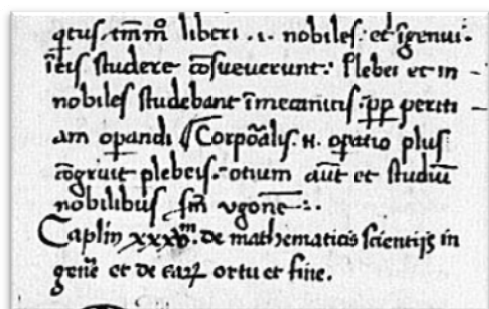 q̄tus. tm̄mō liberi .i. nobiles: et īgenui·
ī eis studere ꝯsueuerunt: Plebei et in-
nobiles studebant ī mecanicis ꝓpꝑ periti-
am oꝑandi Corꝑalis .n. oꝑatio plus
ꝯgruit plebeis: otium aūt et studiū
nobilibus sm̄ vgonē:.
Caplm xxxvm. de mathematicis scientijs in
gen̄e et de eaꝝ ortu et fine.